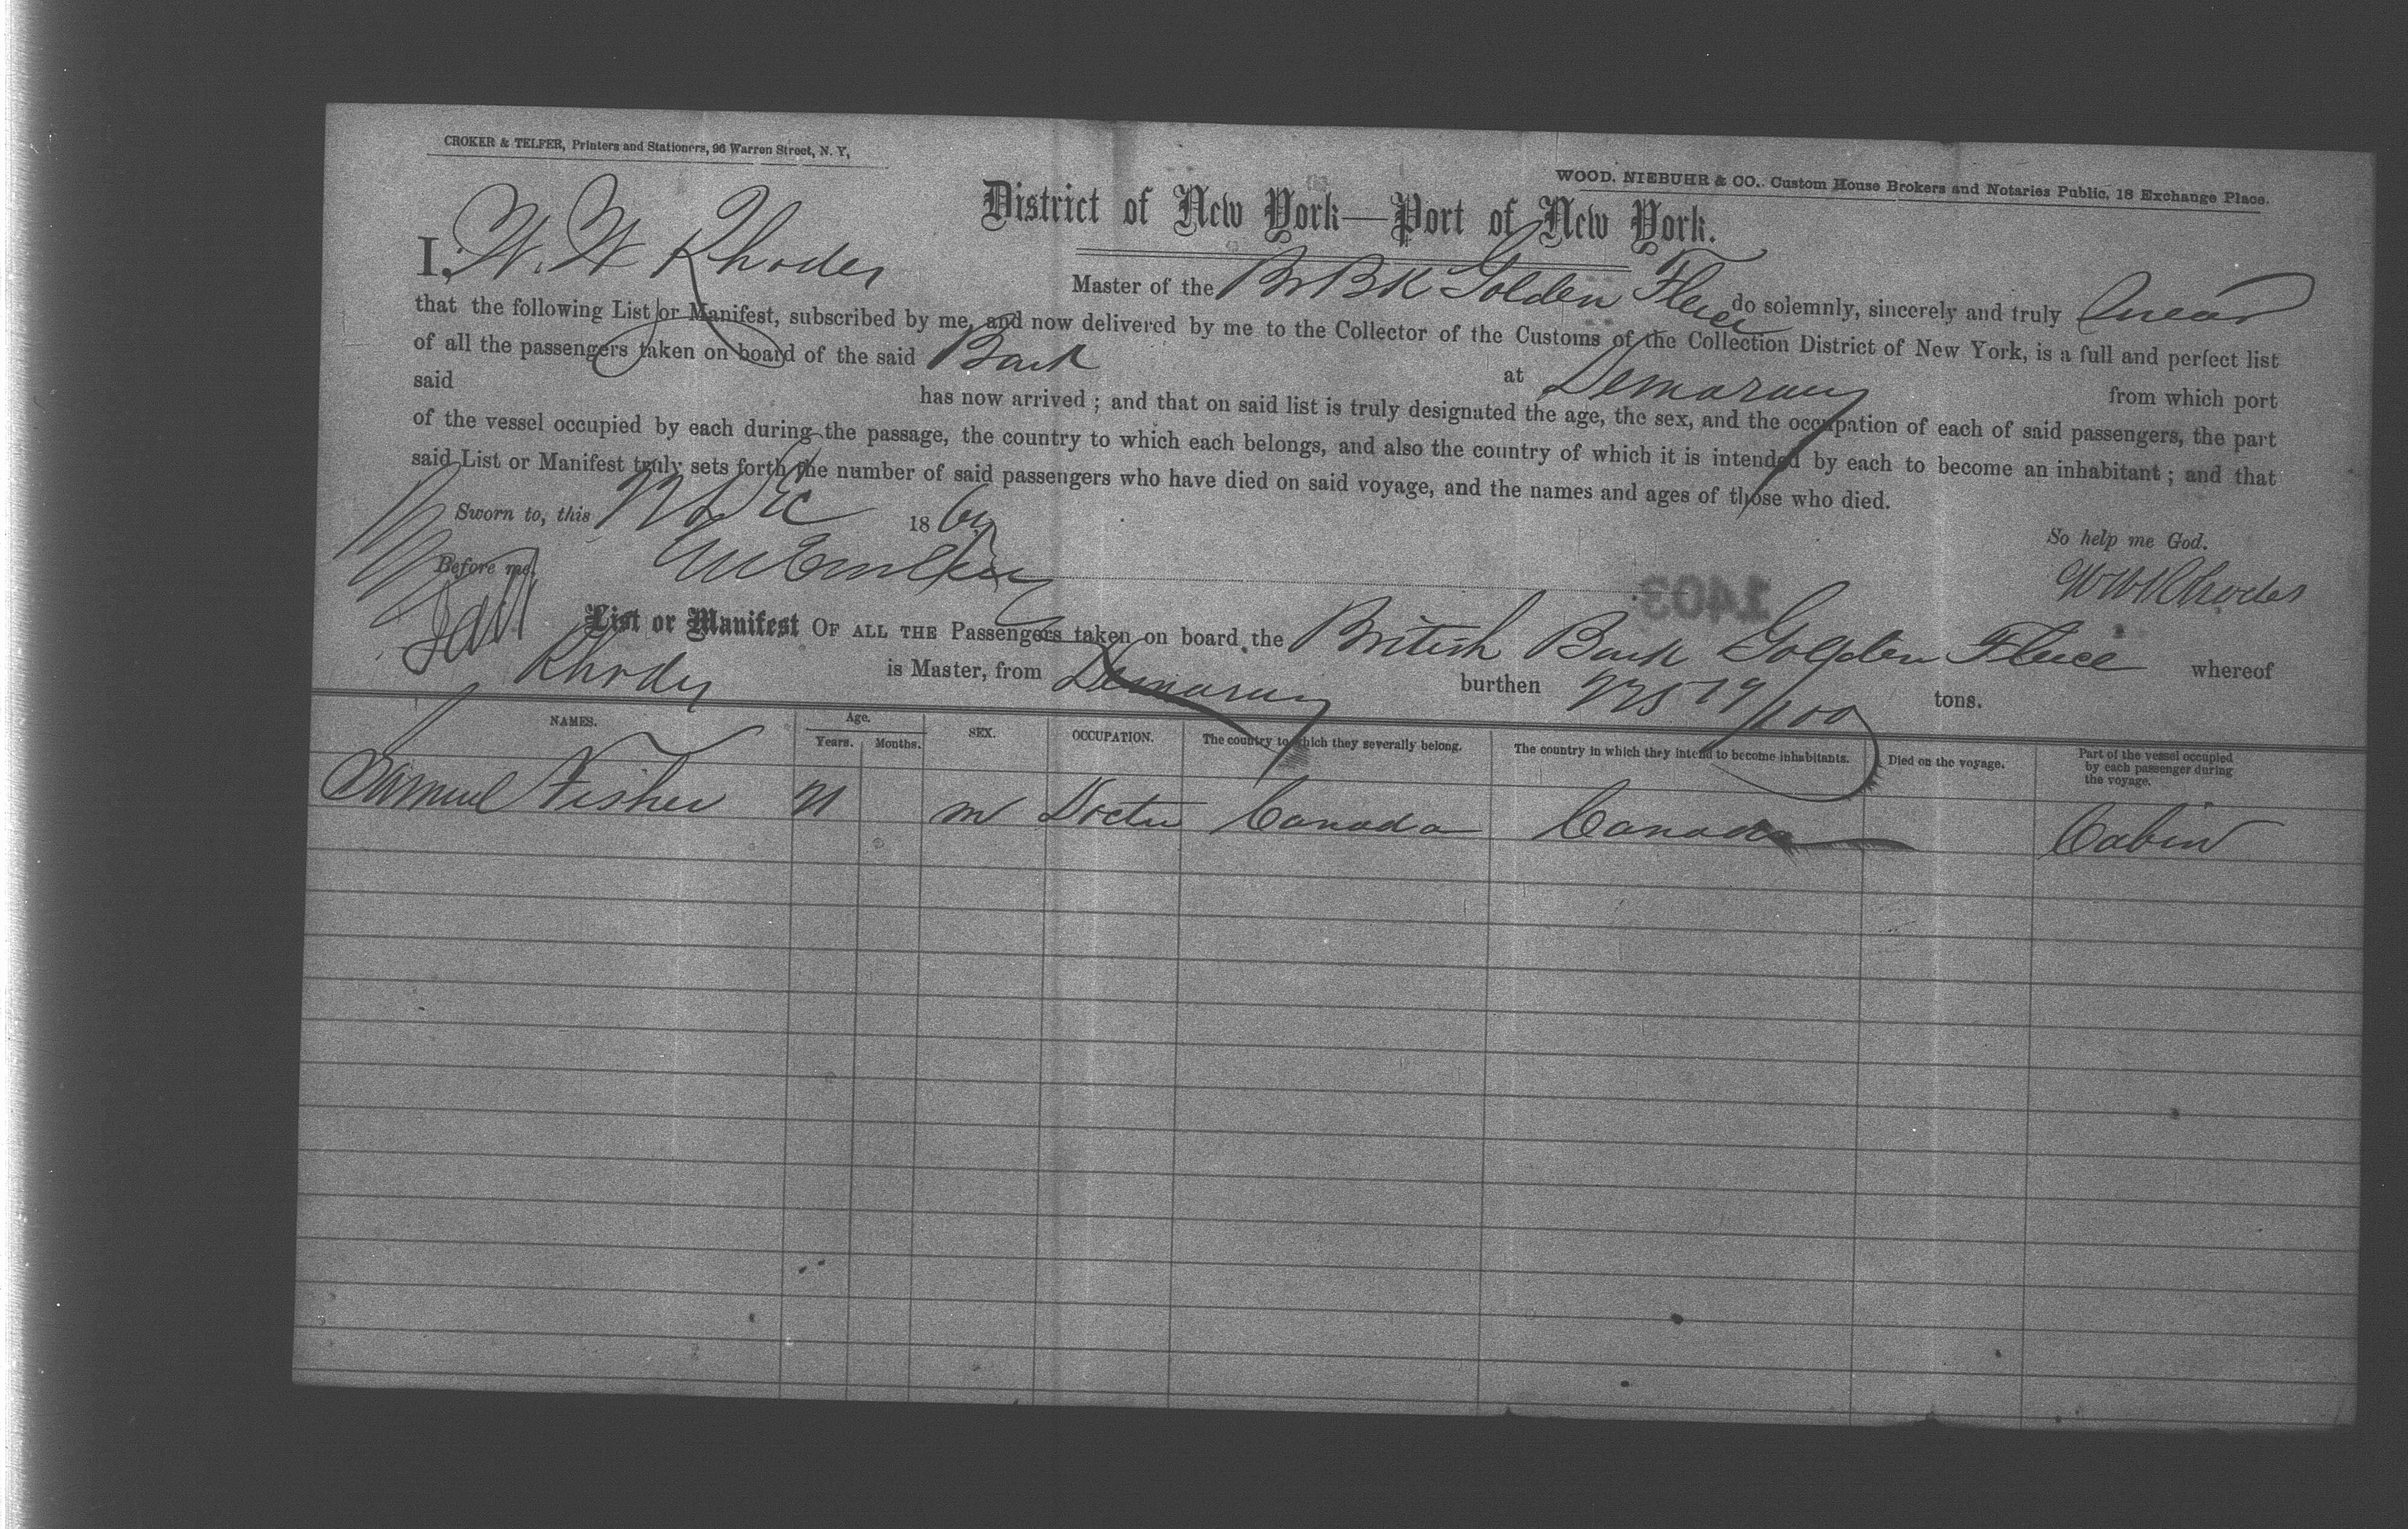 CROKER & TELFER, Printers and Stationers, 96 Warren Street, N. Y,
WOOD. NIEBUHR & CO.. Custom House Brokers and Notaries Public, 18 Exchange Place.
District of New York—Port of New York.
I, W. W Rhodes Master of the Br Bk Golden Fleece do solemnly, sincerely and truly Swear
that the following List or Manifest, subscribed by me, and now delivered by me to the Collector of the Customs of the Collection District of New York, is a full and perfect list
of all the passengers taken on board of the said Bark at Demarary from which port
said has now arrived ; and that on said list is truly designated the age, the sex, and the occupation of each of said passengers, the part
of the vessel occupied by each during the passage, the country to which each belongs, and also the country of which it is intended by each to become an inhabitant ; and that
said List or Manifest truly sets forth the number of said passengers who have died on said voyage, and the names and ages of those who died.
Sworn to, this Dec 186
So help me God.
Before me,
W W Rhodes
1403
List or Manifest OF ALL THE Passengers taken on board the British Bark Golden Fleece whereof
Rhodes is Master, from Demarary burthen 225 79/100 tons.
NAMES. Age. Years. Months. SEX. OCCUPATION. The country to which they severally belong. The country in which they intend to become inhabitants. Died on the voyage. Part of the vessel occupied by each passenger during the voyage.
Samuel Fisher 21 m Doctor Canada Canada Cabin